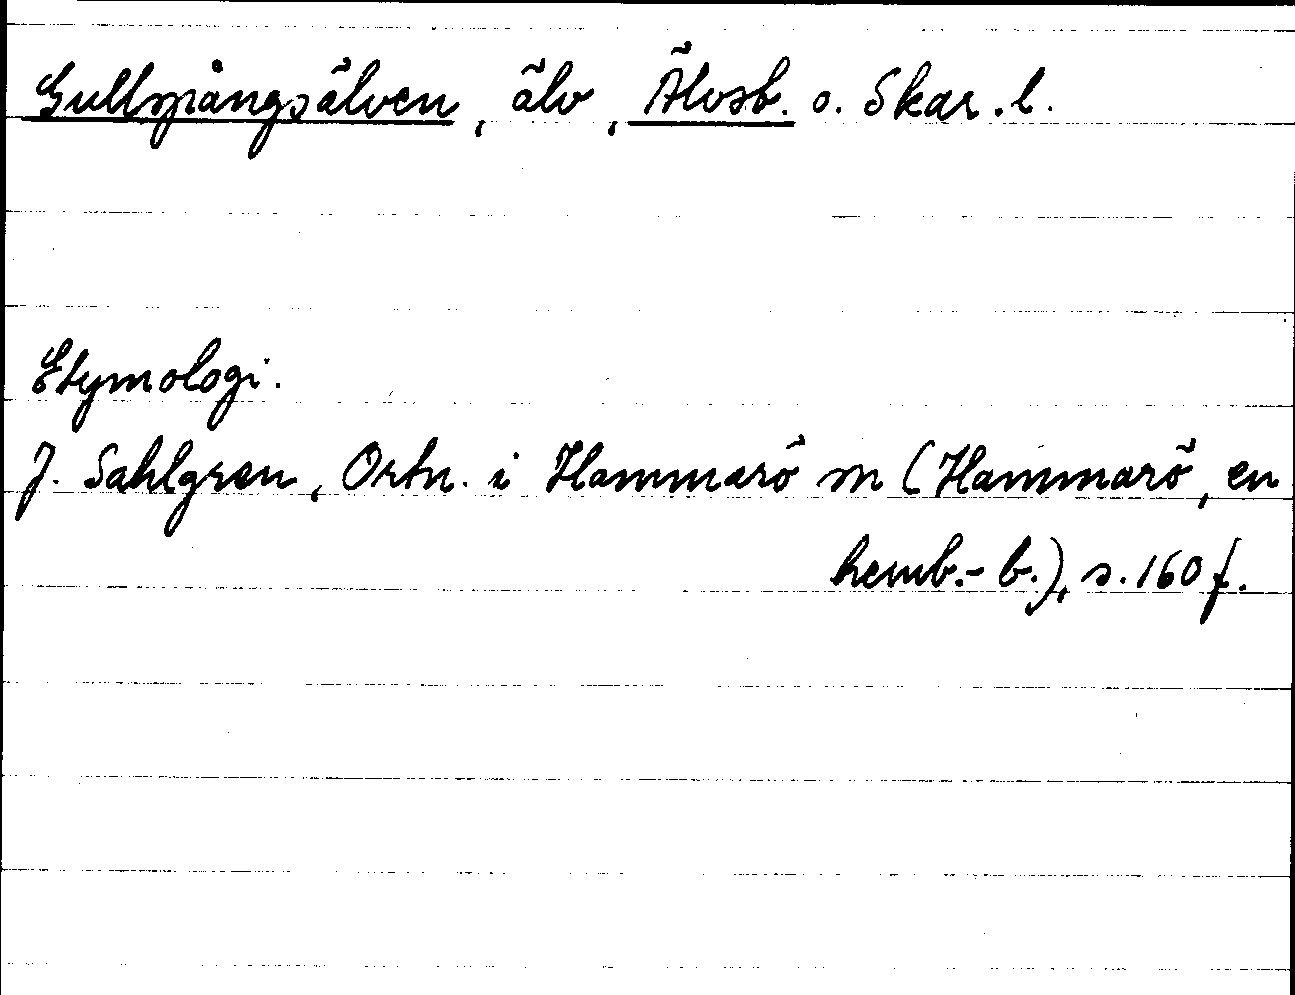 Gullspångsälven, älv, Älvsb. o. Skar. l.
Etymologi.
J. Sahlgren, Ortn. i Hammarö sn (Hammarö, en
hemb.-b.), s. 160 f.